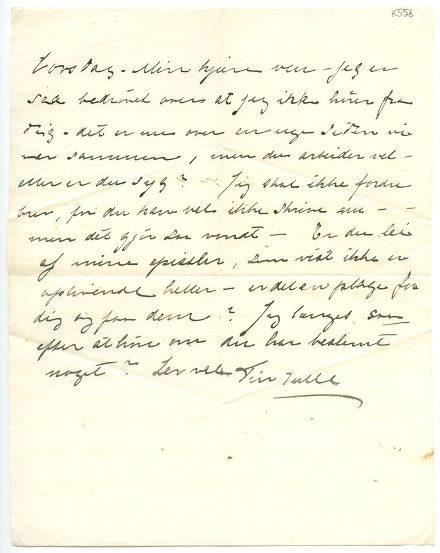 K558
Torsdag – Min kjære ven – Jeg er
saa bedrövet over at jeg ikke hörer fra
dig – det er nu over en uge siden vi
var sammen, men du arbeider vel –
eller er du syg? Jeg skal ikke fordre
brev, for du kan vel ikke skrive
men det gjör saa vondt – Er du lei
af mine epistler, som vist ikke er
oplivende heller – er det en plage for
dig og faa dem? Jeg længes saa
efter at höre om du har bestemt
noget? Lev vel Din Tulla